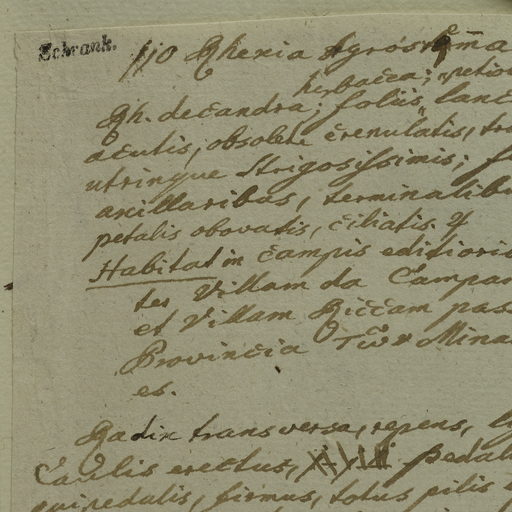 Schrank.
110 Rhexia Agrostēma
herbacea; petio
Rh. decandra; foliis lanc
acutis, obsolete crenulatis, tri
utrinque strigosissimis; f
axillaribus, terminalibu
petalis obovatis, ciliatis. ♃
Habitat in campis editiorib
ter Villam da Campan
et Villam Riccam pass
Provincia τῶν Mina
es.
Radix transversa, repens, l
Caulis erectus, pedal
quipedalis, firmus, totus pilis